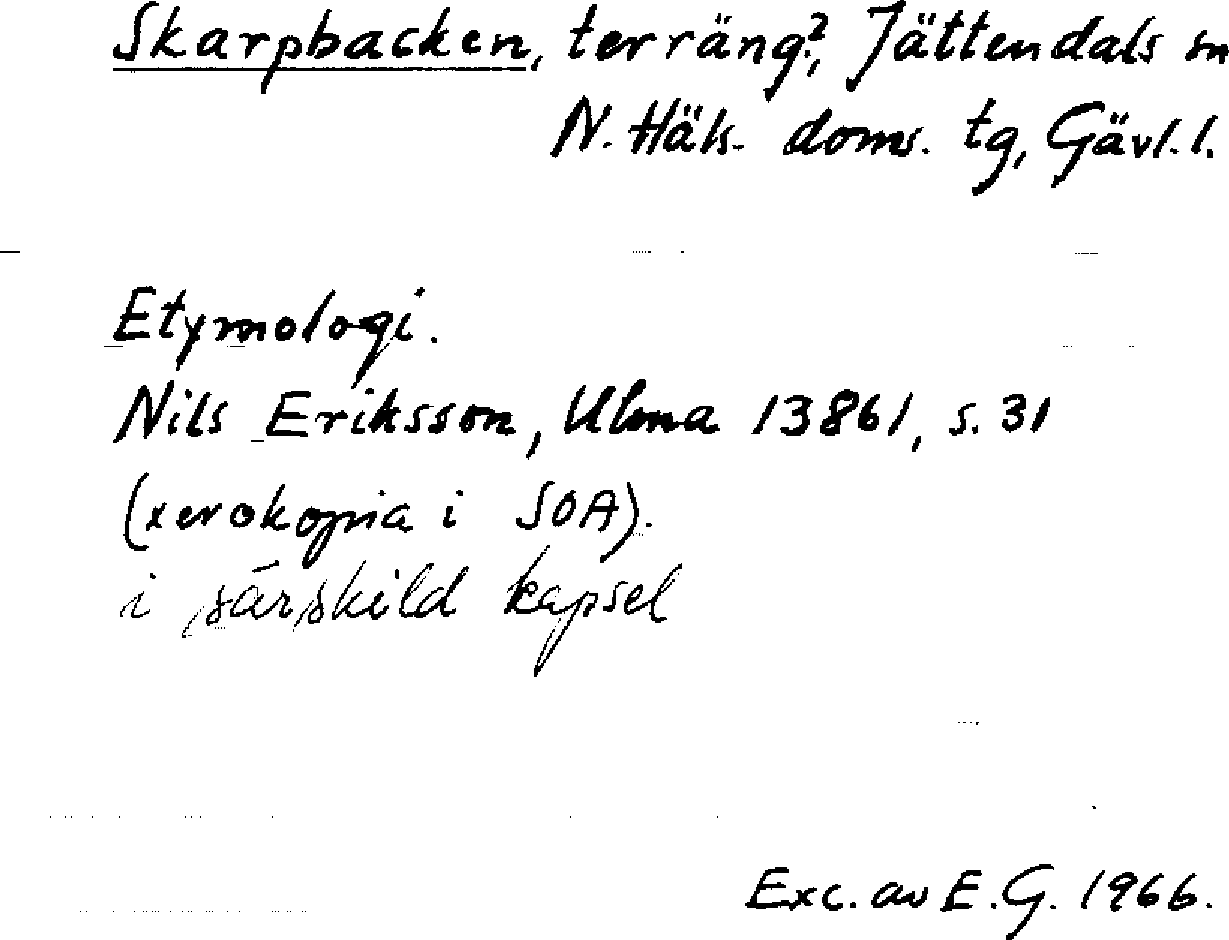 Skarpbacken, terräng?, Jättendals sn
N. Häls. doms. tg, Gävl. l.
Etymologi.
Nils Eriksson, Ulma 13861, s. 31
(xerokopia i SOA).
i särskild kapsel
Exc. av E.G. 1966.